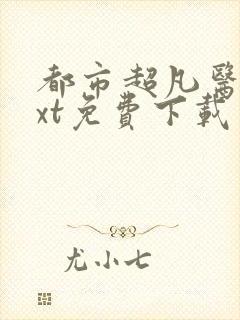 都市超凡醫
xt免費下載
尤小七